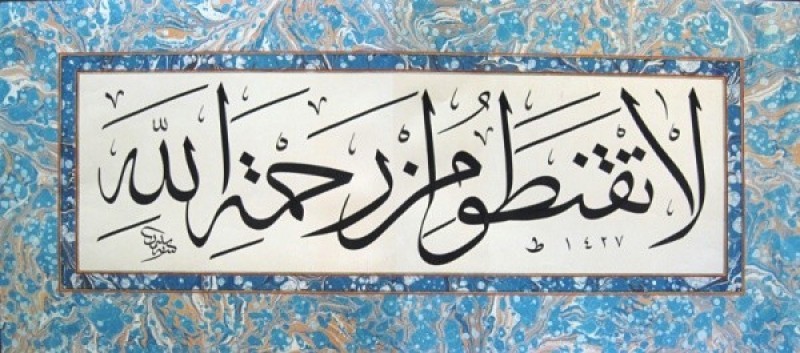 لا تقنطوا من رحمة الله
ط ١٤٢٧